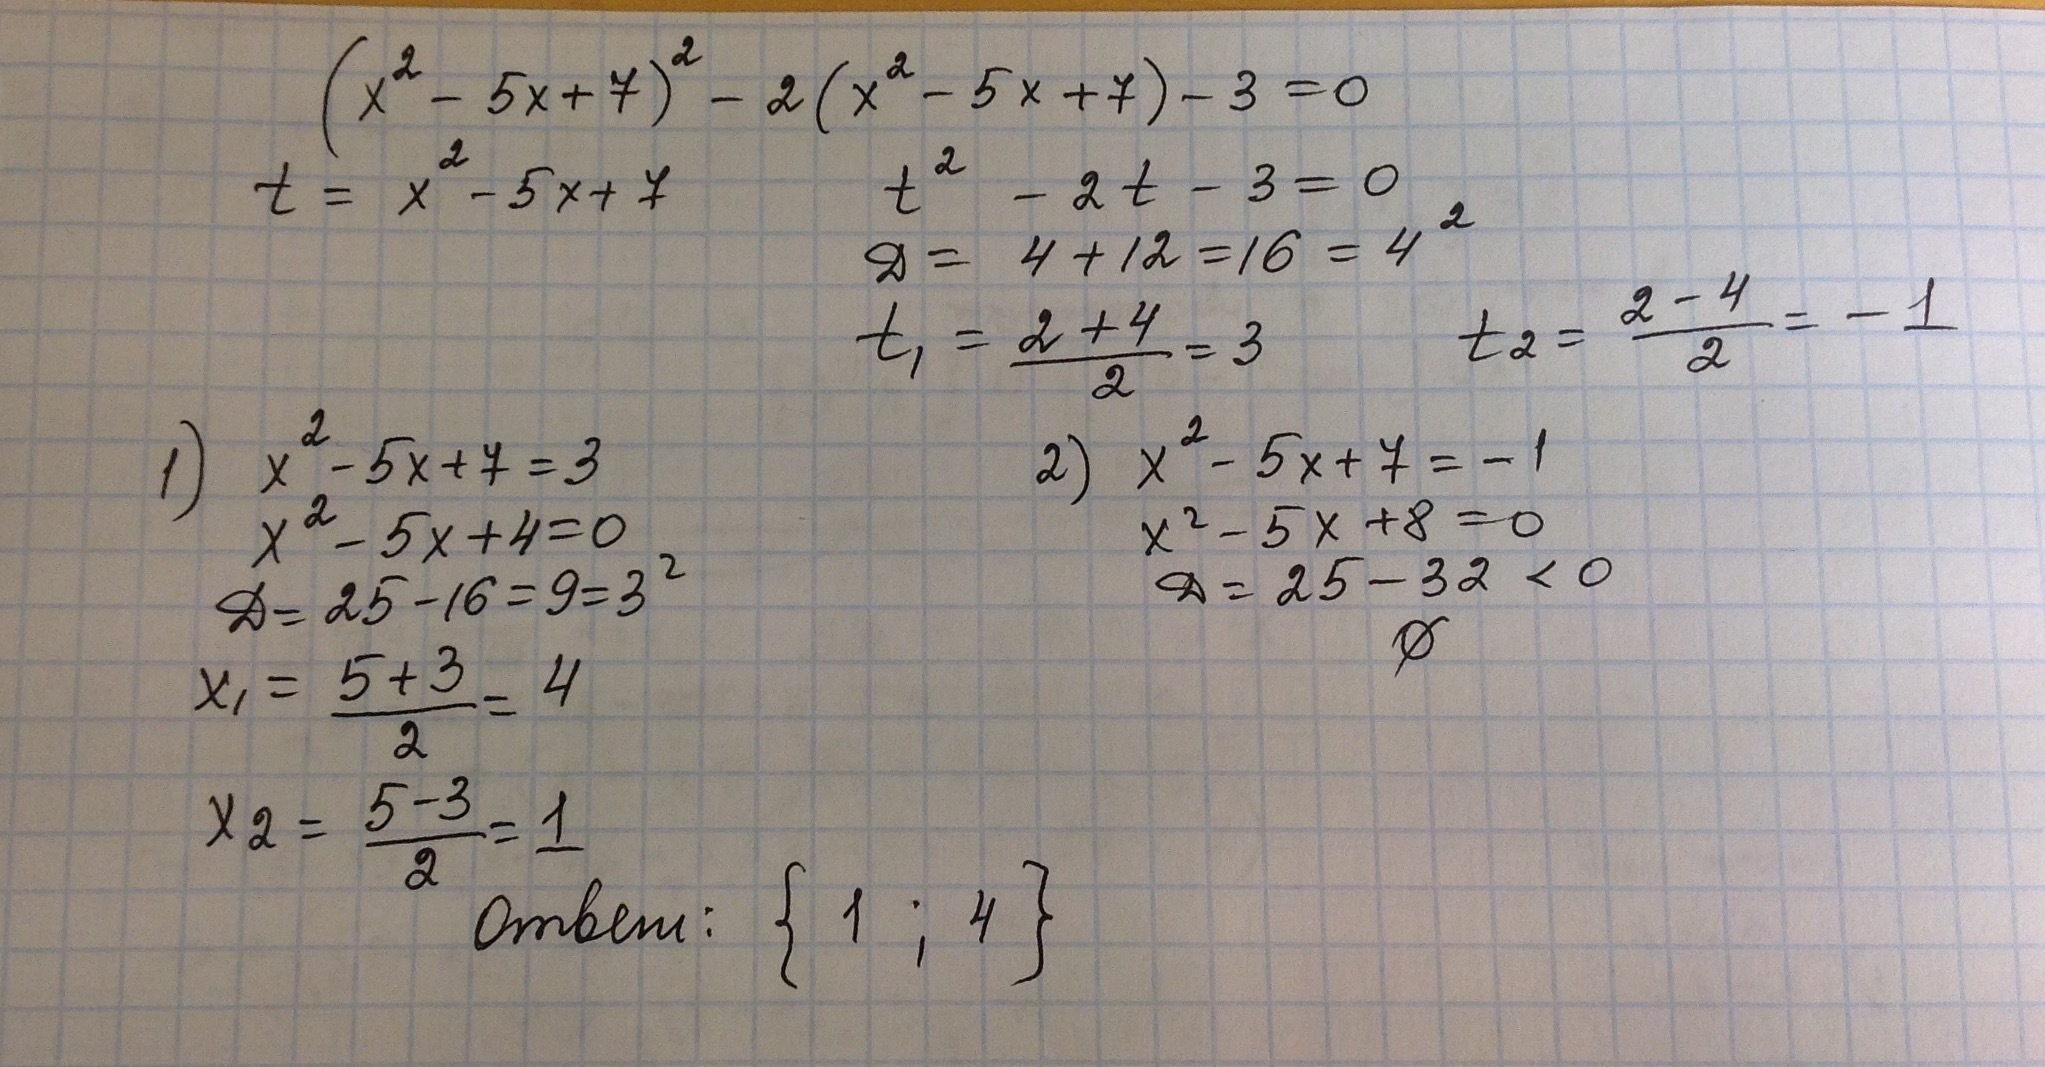 (x² - 5x + 7)² - 2(x² - 5x + 7) - 3 = 0
t = x² - 5x + 7 t² - 2t - 3 = 0
D = 4 + 12 = 16 = 4²
t₁ = (2 + 4)/2 = 3 t₂ = (2 - 4)/2 = -1
1) x² - 5x + 7 = 3
x² - 5x + 4 = 0
D = 25 - 16 = 9 = 3²
x₁ = (5 + 3)/2 = 4
x₂ = (5 - 3)/2 = 1
2) x² - 5x + 7 = -1
x² - 5x + 8 = 0
D = 25 - 32 < 0
∅
Ответ: {1 ; 4}